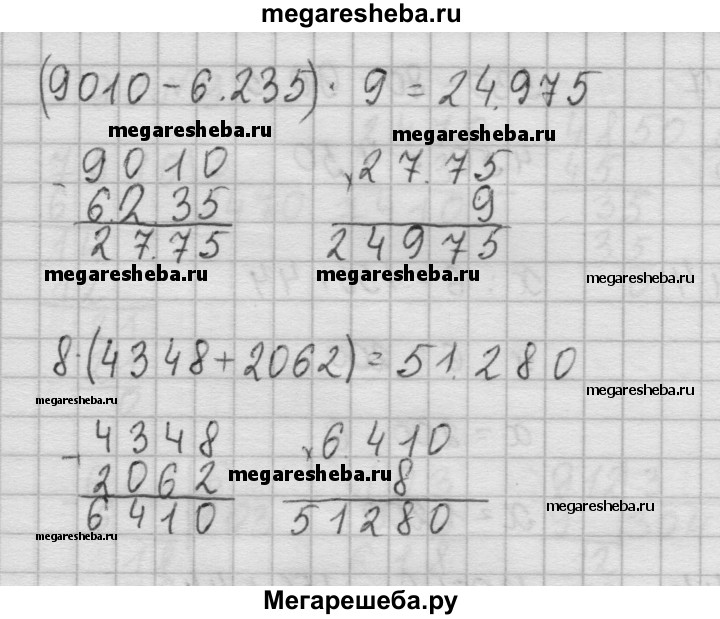 megaresheba.ru
(9010 - 6.235) · 9 = 24.975
megaresheba.ru megaresheba.ru
- 9010 × 27.75
6.2.35 9
27.75 24975
megaresheba.ru megaresheba.ru megaresheba.ru
8·(4348+2062)=51.280
megaresheba.ru megaresheba.ru
- 4348 × 6.410
2062 megaresheba.ru 8
6410 51280
megaresheba.ru megaresheba.ru
Мегарешеба.ру